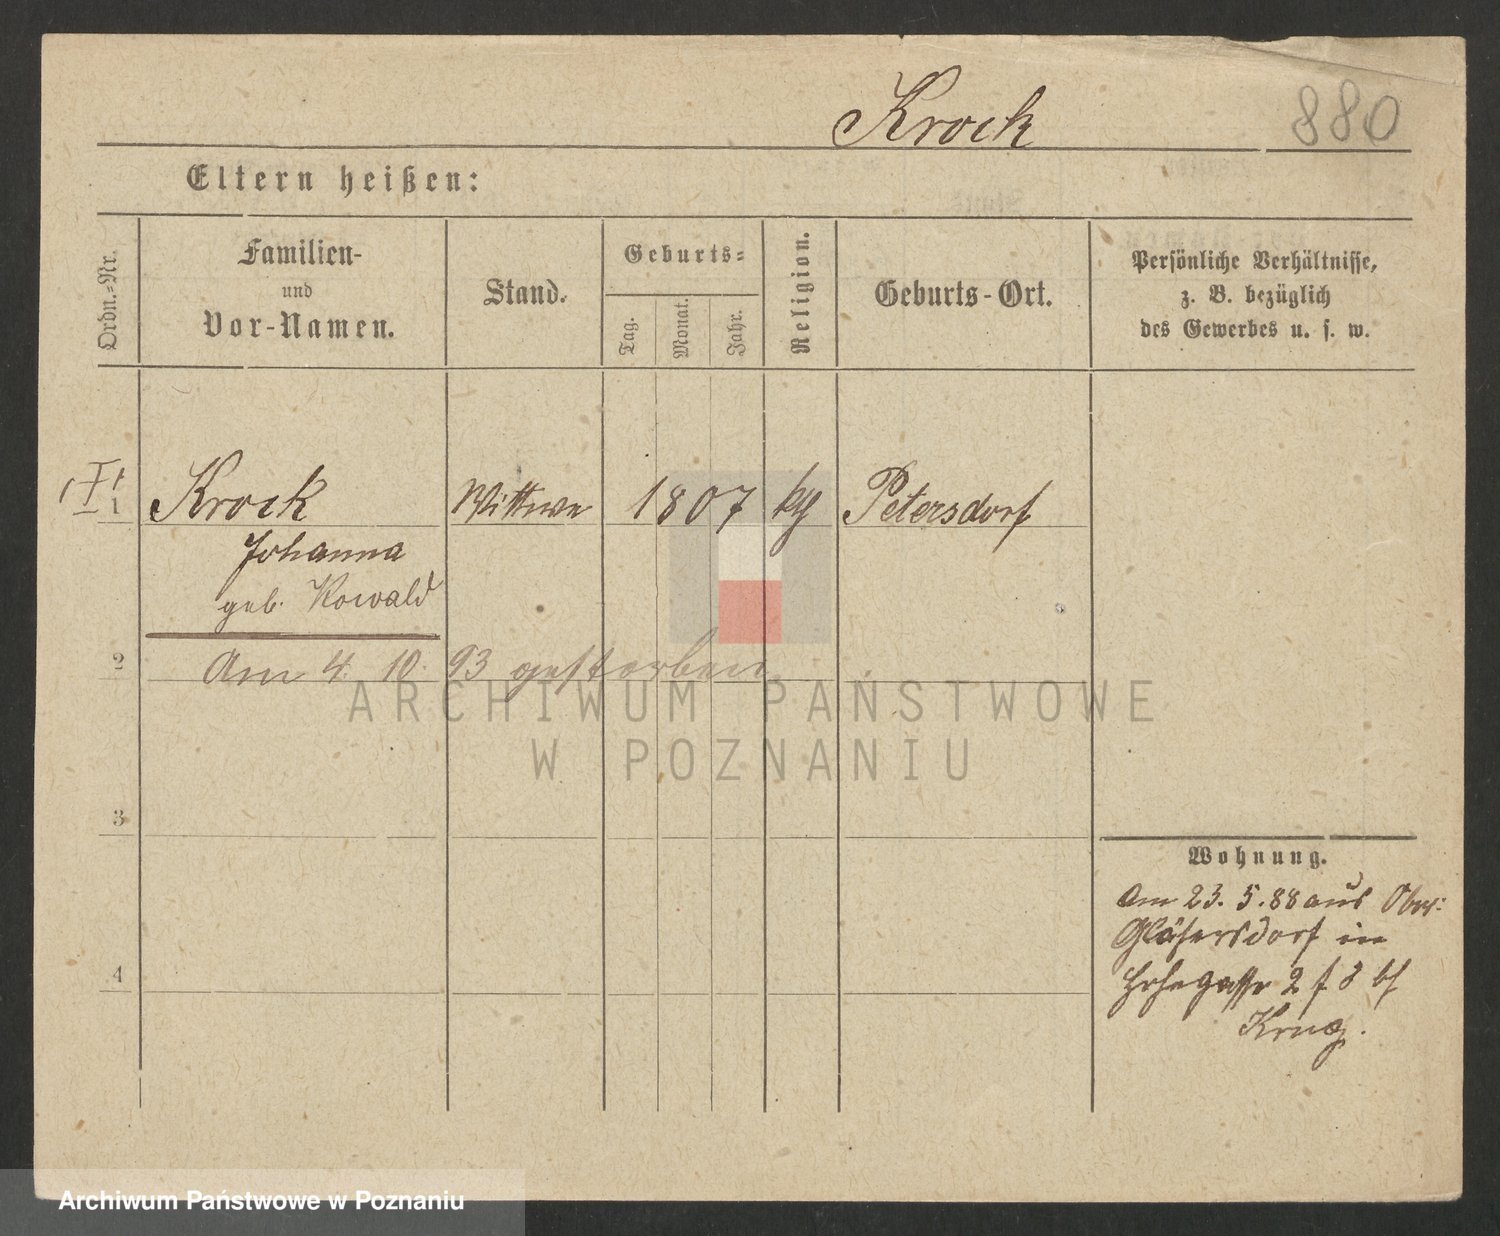 Krock 880
Eltern heißen:
Ordn.-Nr.
Familien-
und
Vor-Namen.
Stand.
Geburts-
Tag.
Monat.
Jahr.
Religion.
Geburts-Ort.
Persönliche Verhältnisse,
z. B. bezüglich
des Gewerbes u. s. w.
1 Krock Wittwe 1807 Petersdorf
Johanna
geb. Kowald
2 Am 4. 10. 93 gestorben
ARCHIWUM PAŃSTWOWE
W POZNANIU
3
Wohnung.
Am 23. 5. 88 aus Ober-
Gläsersdorf in
4
2
Krug.
Archiwum Państwowe w Poznaniu